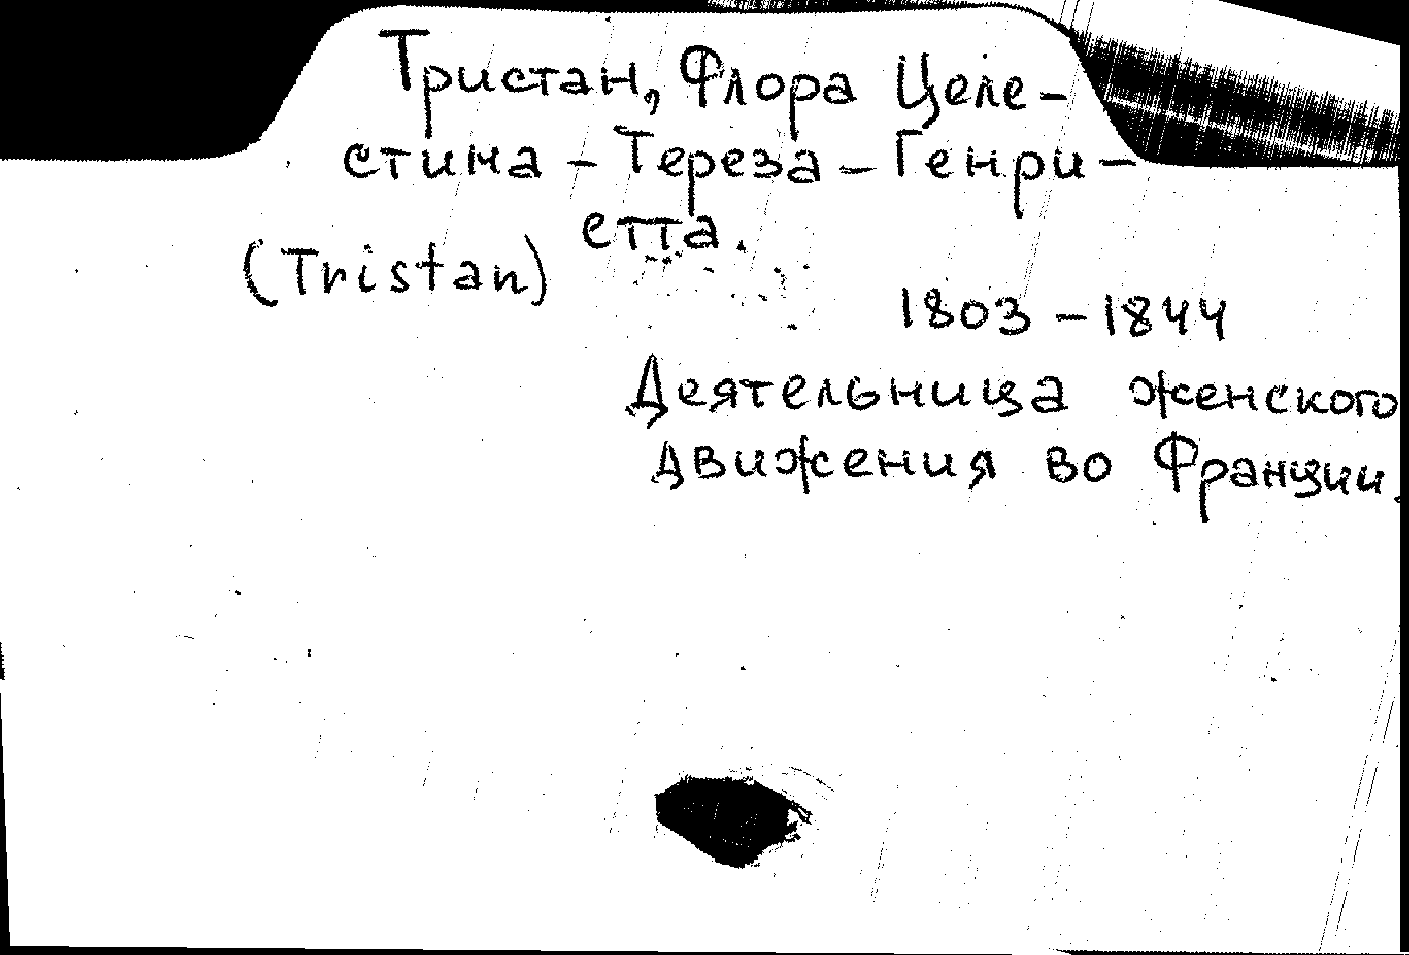 Тристан, Флора Целе-
стина - Тереза - Генри-
етта.
(Tristan)
1803 - 1844
Деятельница женского
движения во Франции.